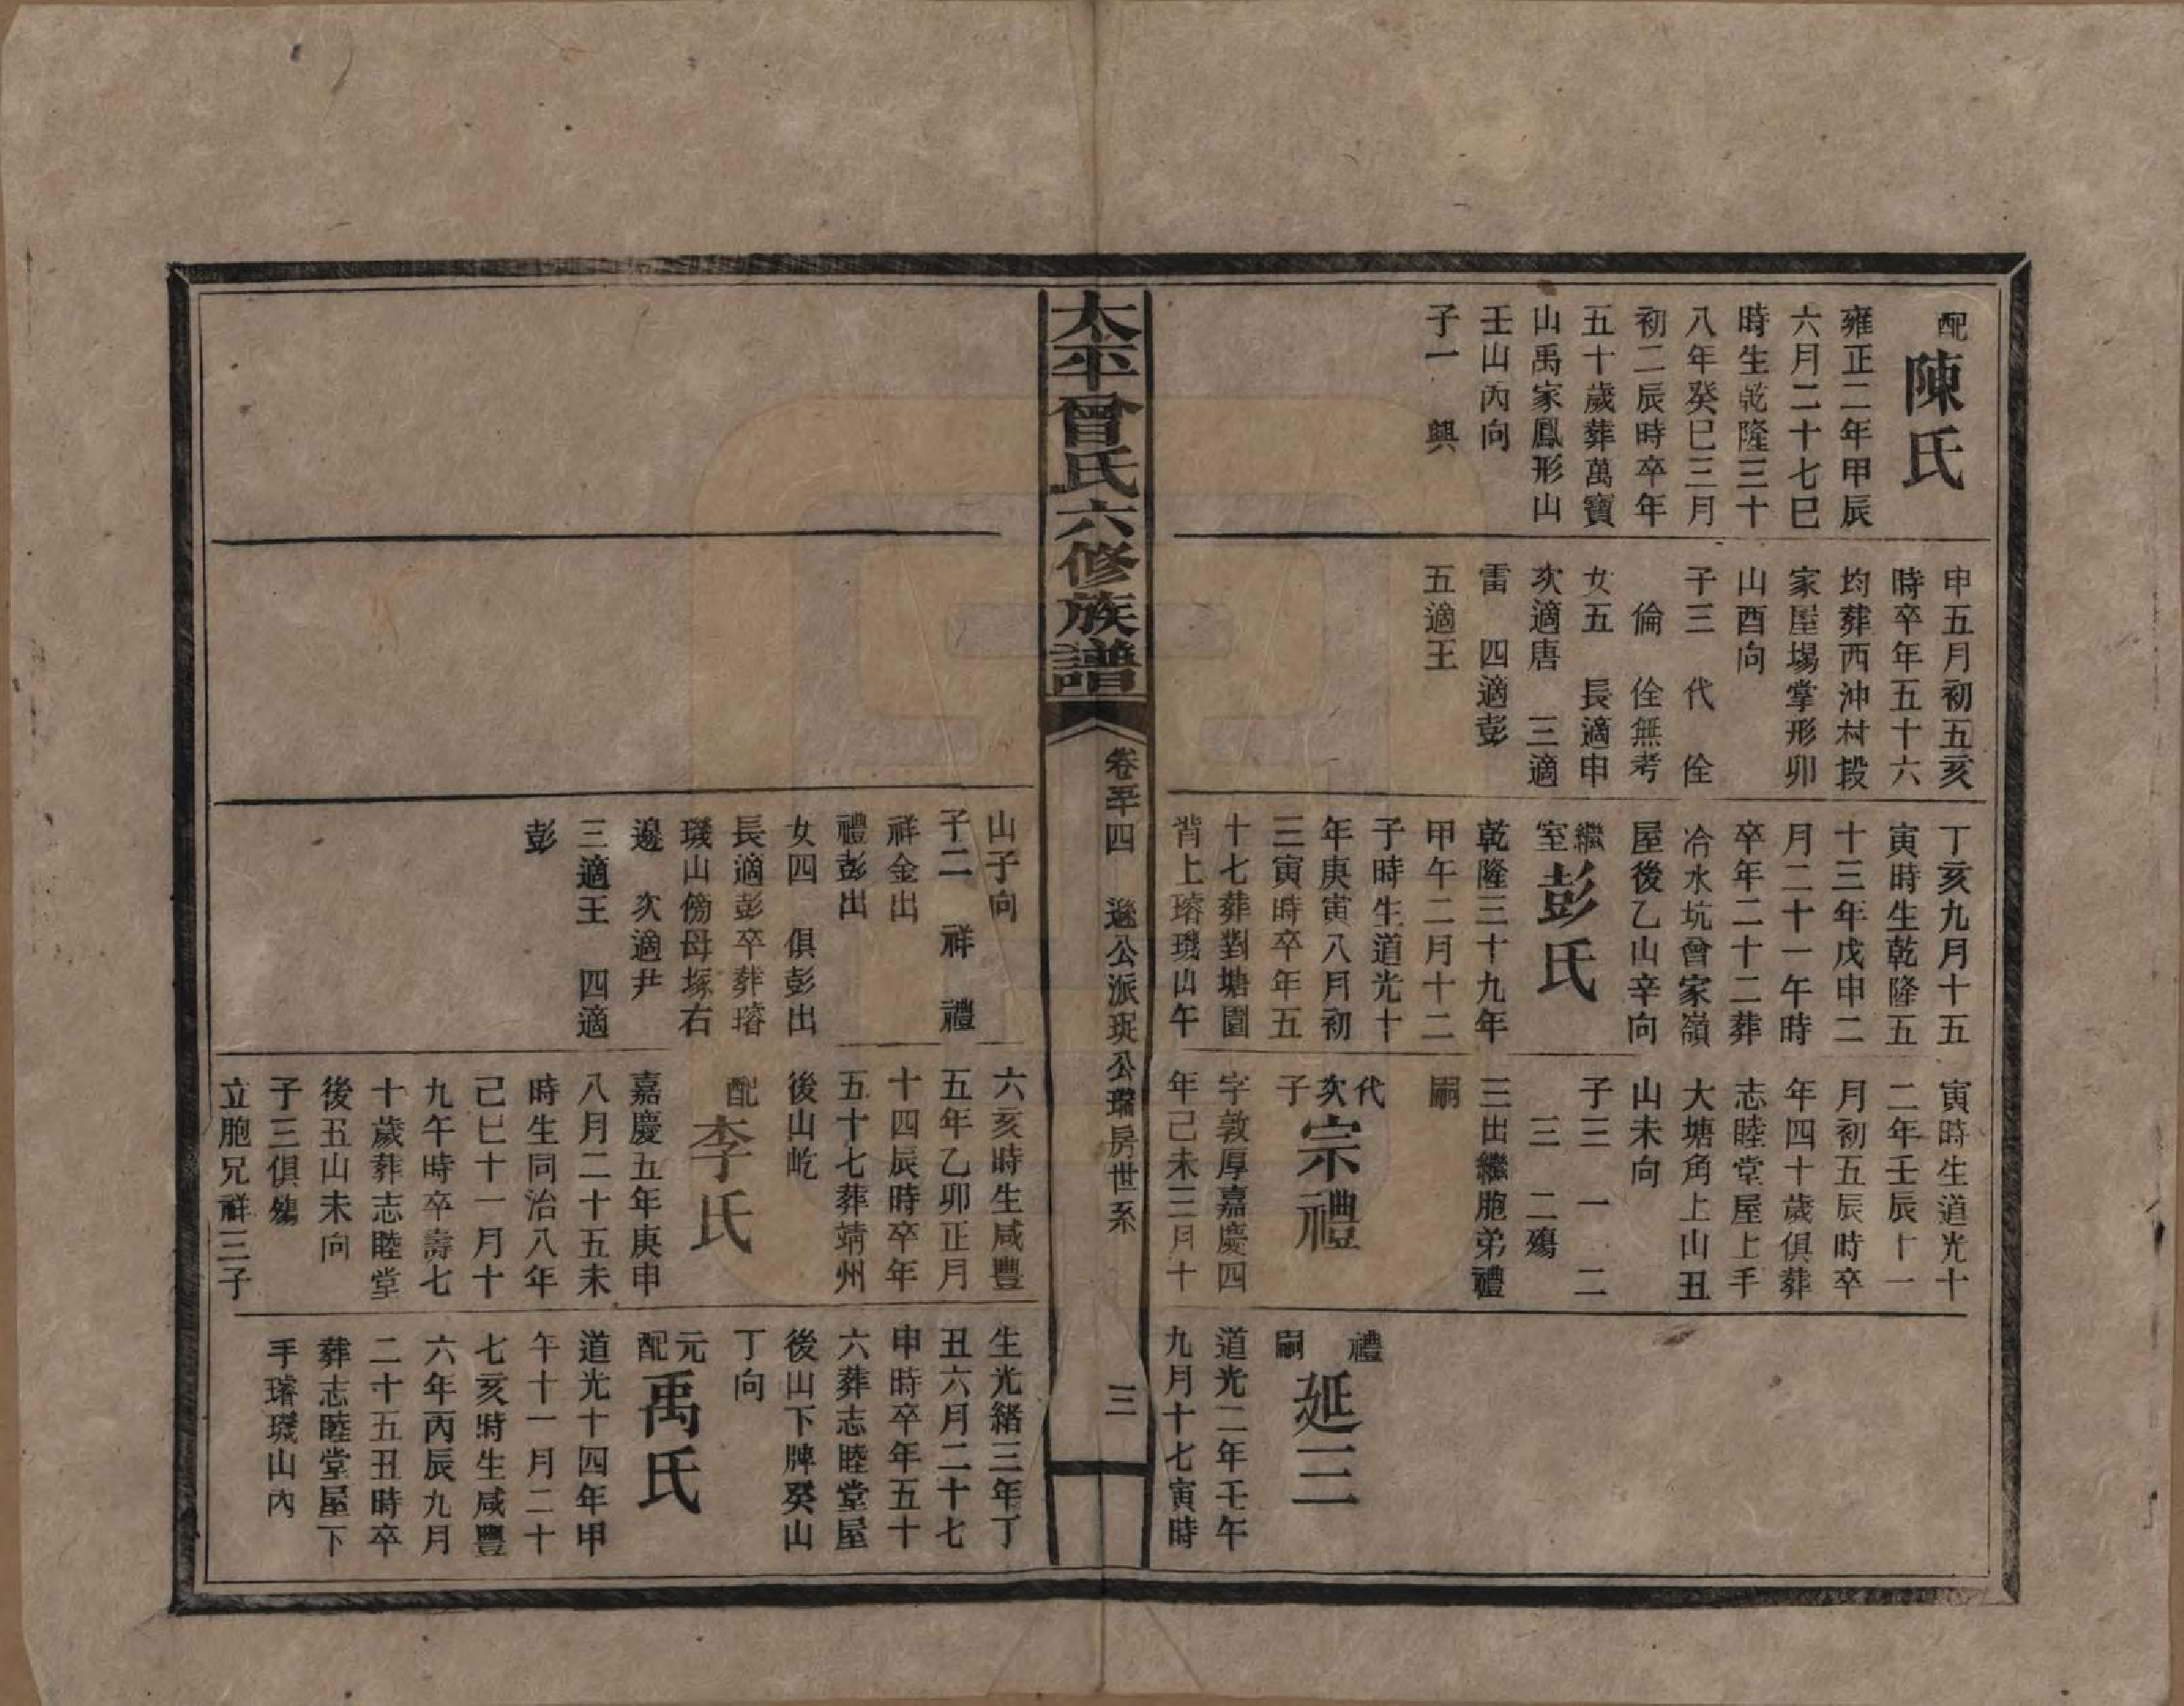 配
陳氏
雍正二年甲辰
六月二十七巳
時生乾隆三十
八年癸巳三月
初二辰時卒年
五十歲葬萬寶
山禹家鳳形山
壬山丙向
子一　興
申五月初五亥
時卒年五十六
均葬西沖村段
家屋場掌形卯
山酉向
子三　代　佺
倫　佺無考
女五　長適申
次適唐　三適
雷　四適彭
五適王
丁亥九月十五
寅時生乾隆五
十三年戊申二
月二十一午時
卒年二十二葬
冷水坑曾家嶺
屋後乙山辛向
繼室
彭氏
乾隆三十九年
甲午二月十二
子時生道光十
年庚寅八月初
三寅時卒年五
十七葬對塘園
背上璿璣山午
寅時生道光十
二年壬辰十一
月初五辰時卒
年四十歲俱葬
志睦堂屋上手
大塘角上山丑
山未向
子三　一　二
三　二殤
三出繼胞弟禮
嗣
代次子
宗禮
字敦厚嘉慶四
年己未三月十
禮嗣
延三
道光二年壬午
九月十七寅時
太平曾氏六修族譜
卷五十四　遜公派珙公璿房世系
三
山子向
子二　祥　禮
祥金出
禮彭出
女四　俱彭出
長適彭卒葬璿
璣山傍母塚右
邊　次適尹
三適王　四適
彭
六亥時生咸豐
五年乙卯正月
十四辰時卒年
五十七葬靖州
後山屹
配
李氏
嘉慶五年庚申
八月二十五未
時生同治八年
己巳十一月十
九午時卒壽七
十歲葬志睦堂
後丑山未向
子三俱殤
立胞兄祥三子
生光緒三年丁
丑六月二十七
申時卒年五十
六葬志睦堂屋
後山下牌癸山
丁向
元配
禹氏
道光十四年甲
午十一月二十
七亥時生咸豐
六年丙辰九月
二十五丑時卒
葬志睦堂屋下
手璿璣山內